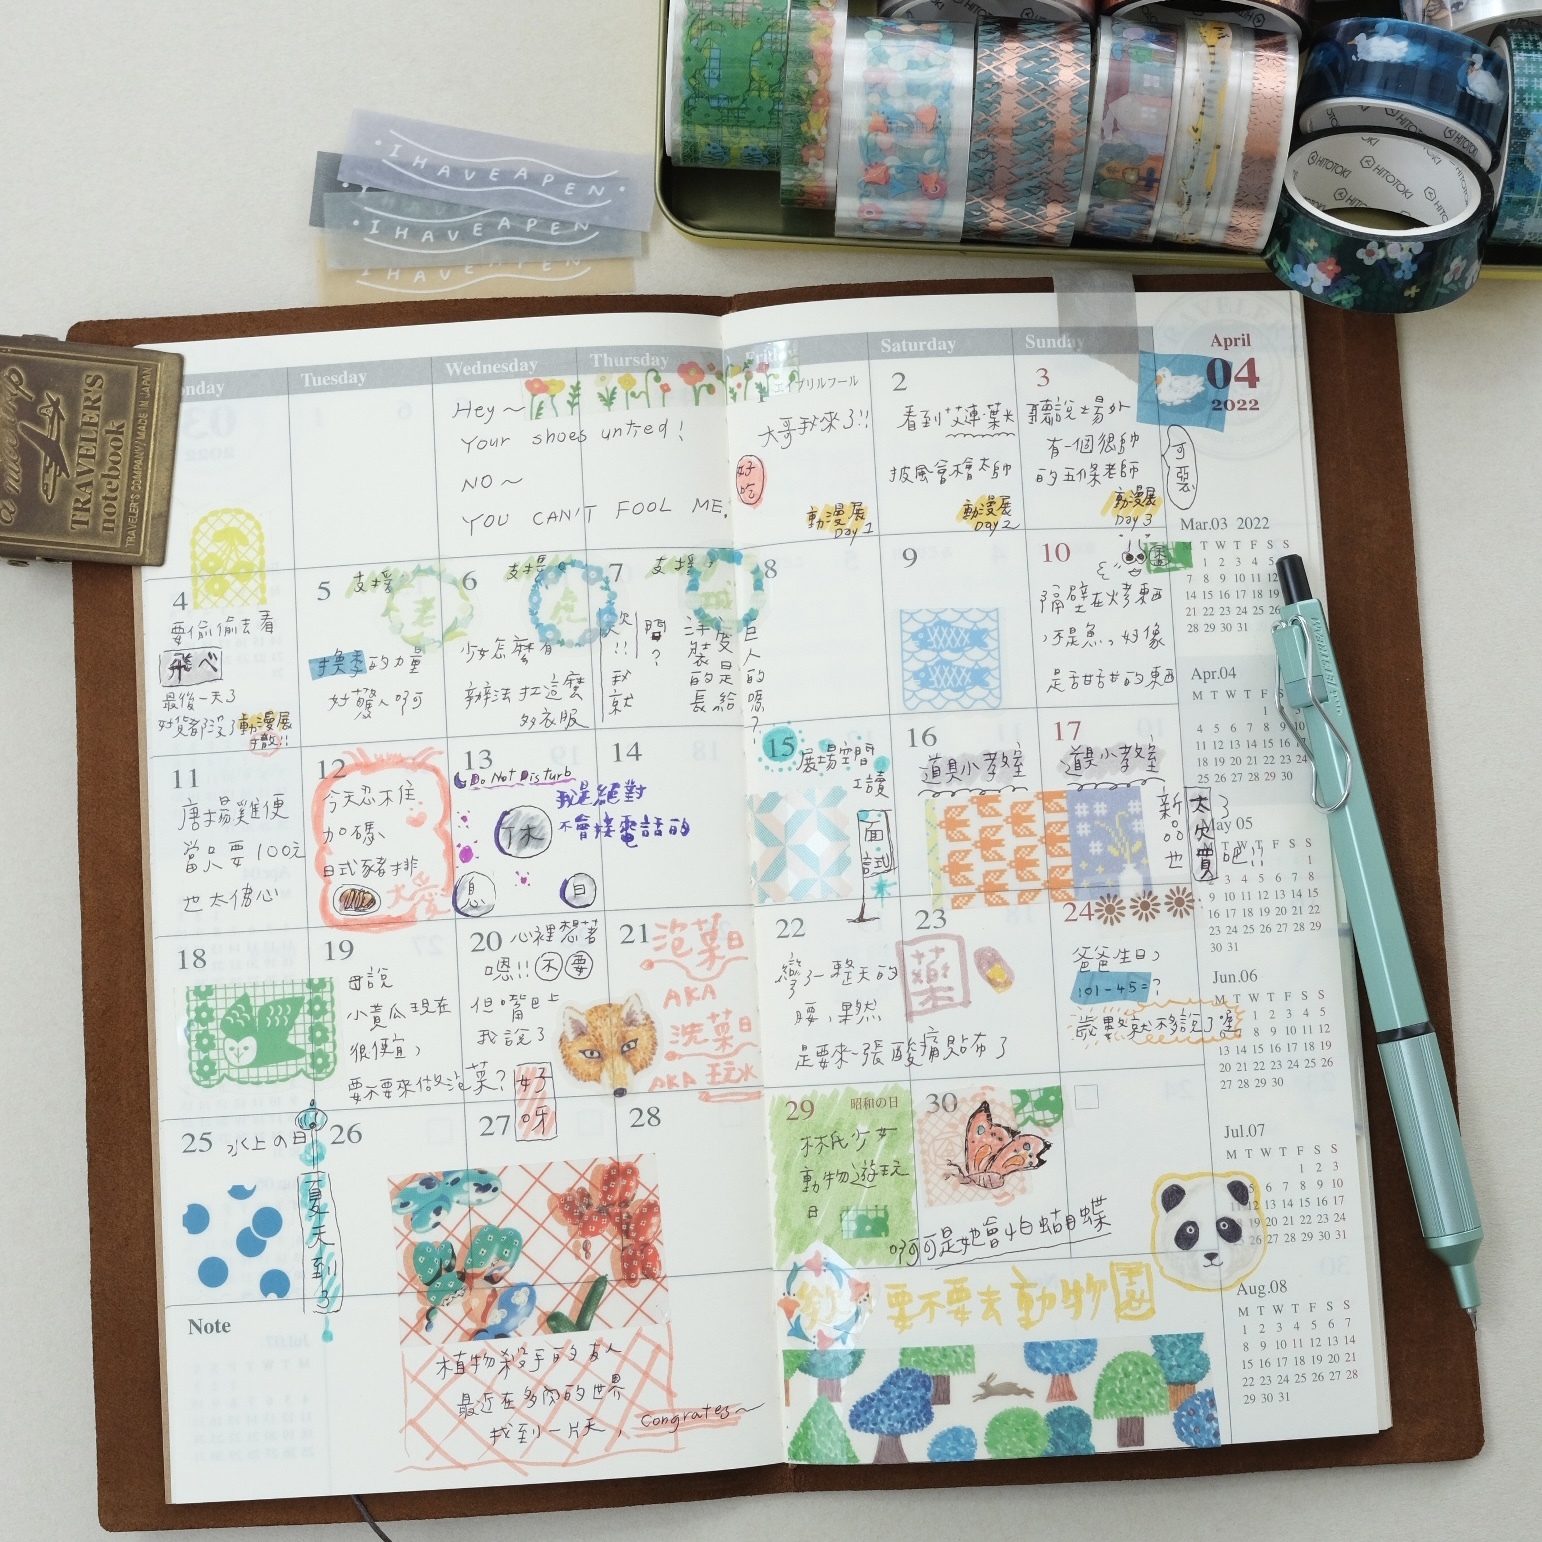 HITOTOKI
HITOTOKI
HITOTOKI
·I HAVE A PEN·
I HAVE A PEN
I HAVE A PEN
TRAVELER'S
notebook
TRAVELER'S COMPANY / MADE IN JAPAN
Tuesday
Wednesday
Thursday
Saturday
Sunday
April
04
2022
Hey~
Your shoes untied!
NO~
YOU CAN'T FOOL ME.
エイプリルフール
大哥我來了!!
好吃
動漫展
Day 1
2
看到艾連·葉卡
披風會不會太帥
動漫展
Day 2
3
聽說場外
有一個很帥
的五條老師
可惡
動漫展
Day 3
4
要偷偷去看
飛べ
最後一天了
好貨都沒了
動漫展
5
支援
換季的力量
好驚人啊
6
支援
虎
少女怎麼有
辦法扛這麼
多衣服
7
支援
問?
洋裝的長
度是給
巨人的嗎?
8
9
10
隔壁在烤東西
不是魚,好像
是甜甜的東西
11
唐揚雞便
當只要100元
也太佛心
12
今天忍不住
加碼
日式豬排
大愛
13
Do Not Disturb
休
息
日
我是絕對
不會接電話的
14
15
展場空間
面試
16
道具小教室
17
道具小教室
新品也
太欠買
了吧!!
18
19
母說
小黃瓜現在
很便宜,
要不要來做泡菜?
好呀
20
心裡想著
嗯!!不要
但嘴巴上
我說了
21
泡菜日
AKA
洗菜日
AKA 玩水
22
彎了一整天的
腰,果然
是要來一張酸痛貼布了
23
藥
24
爸爸生日,
101-45=?
歲數就不移說了喔
25
水上の日
夏天到了
26
27
28
29
昭和の日
林氏少女
動物遊玩
日
30
可是她會怕蝴蝶
Note
植物殺手的友人
最近在多肉的世界
找到一片天,
Congrates~
要不要去動物園
Mar.03 2022
M T W T F S S
1 2 3 4 5
7 8 9 10 11 12
14 15 16 17 18 19
21 22 23 24 25 26
28 29 30 31
Apr.04
M T W T F S
1
4 5 6 7 8 9 10
11 12 13 14 15 16
18 19 20 21 22 23
25 26 27 28 29 30
May 05
1
2 3 4 5 6 7 8
9 10 11 12 13 14 15
16 17 18 19 20 21 22
23 24 25 26 27 28 29
30 31
Jun.06
M T W T F S S
1 2 3 4 5
6 7 8 9 10 11 12
13 14 15 16 17 18 19
20 21 22 23 24 25 26
27 28 29 30
Jul.07
M T W T F S S
1 2 3
5 6 7 8 9 10
11 12 13 14 15 16 17
19 20 21 22 23 24
25 26 27 28 29 30 31
Aug.08
M T W T F S S
1 2 3 4 5 6 7
8 9 10 11 12 13 14
15 16 17 18 19 20 21
22 23 24 25 26 27 28
29 30 31